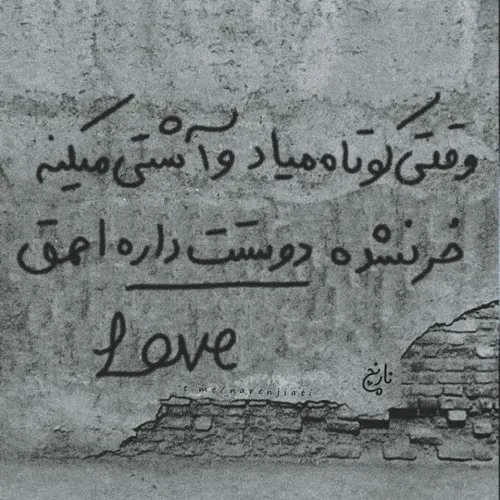 وقتی کوتاه میاد و آشتی میکنه
خر نشده دوستت داره احمق
Love
نارنج
t.me/narenjiati